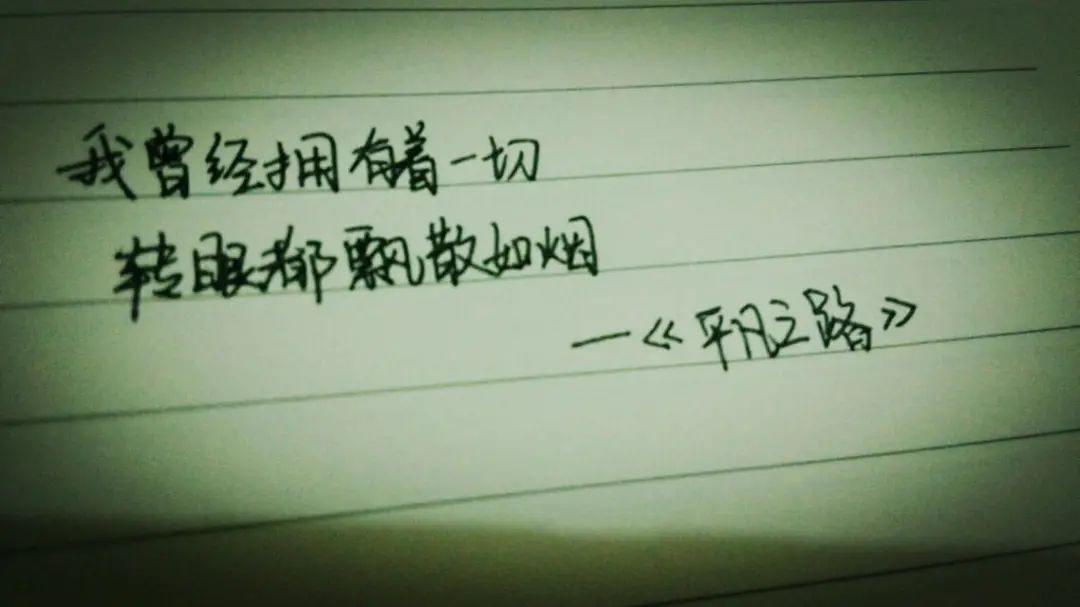 我曾经拥有着一切
转眼都飘散如烟
—《平凡之路》